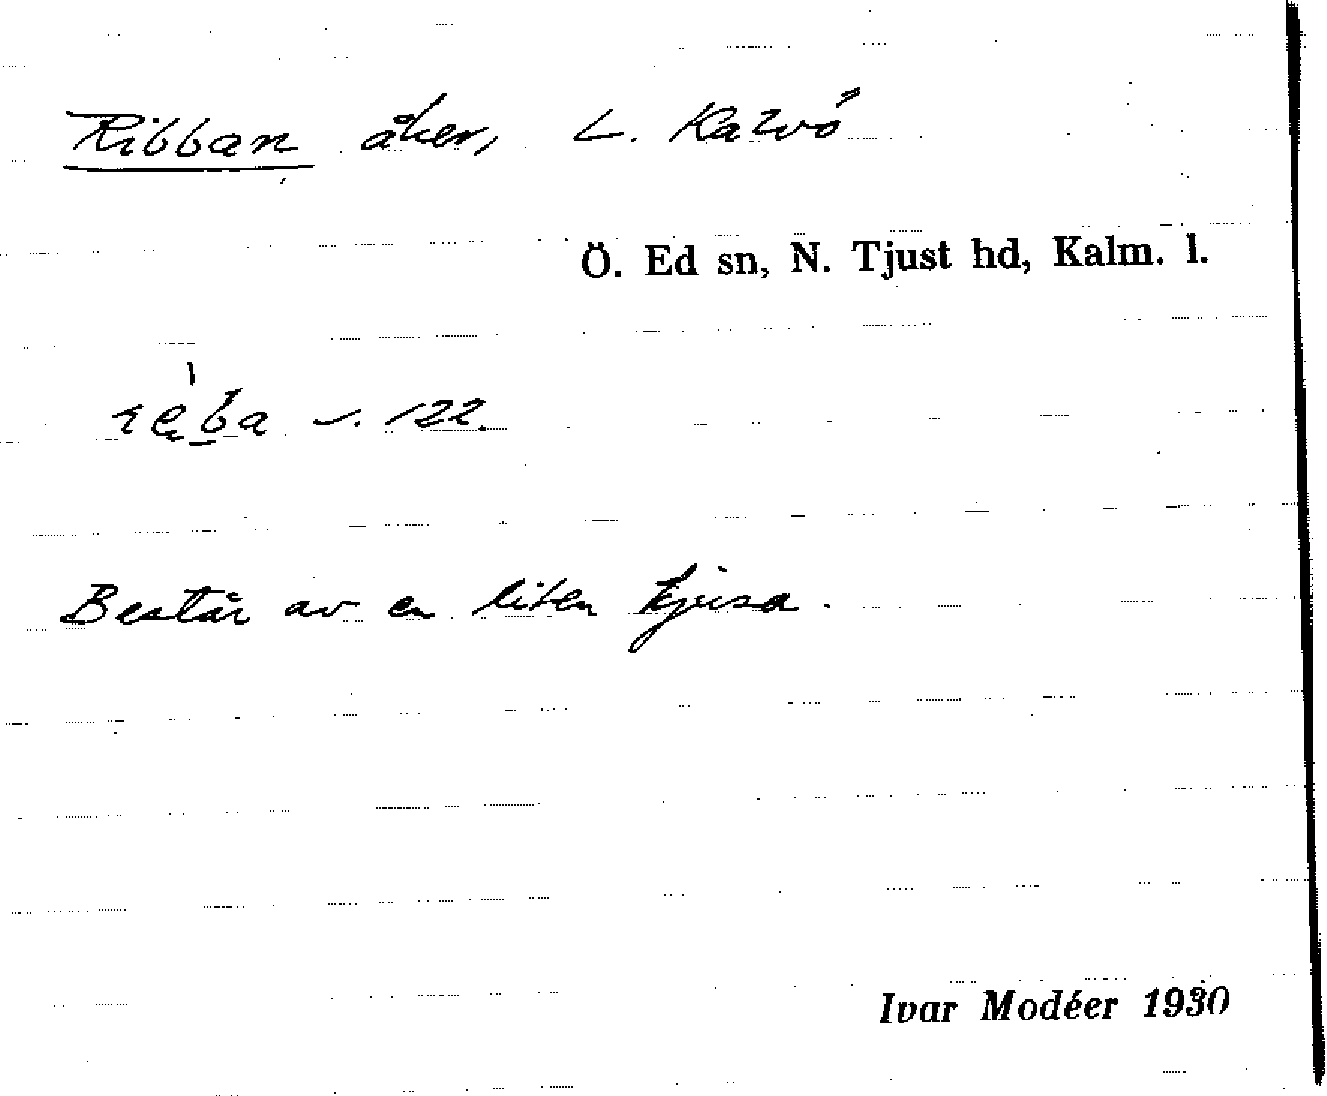 Ribban åker, L. Kalvö
Ö. Ed sn, N. Tjust hd, Kalm. l.
Består av en liten tjusa.
Ivar Modéer 1930